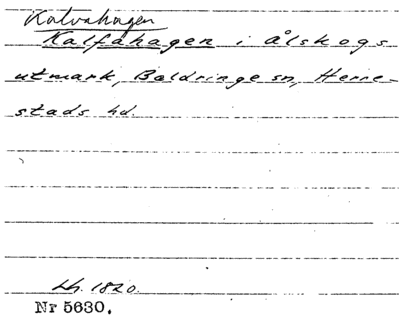 Kalvahagen
Kalfåhagen i Ålskogs
utmark, Baldringe sn, Herre-
stads hd.
Lh. 1820.
Nr 5630.